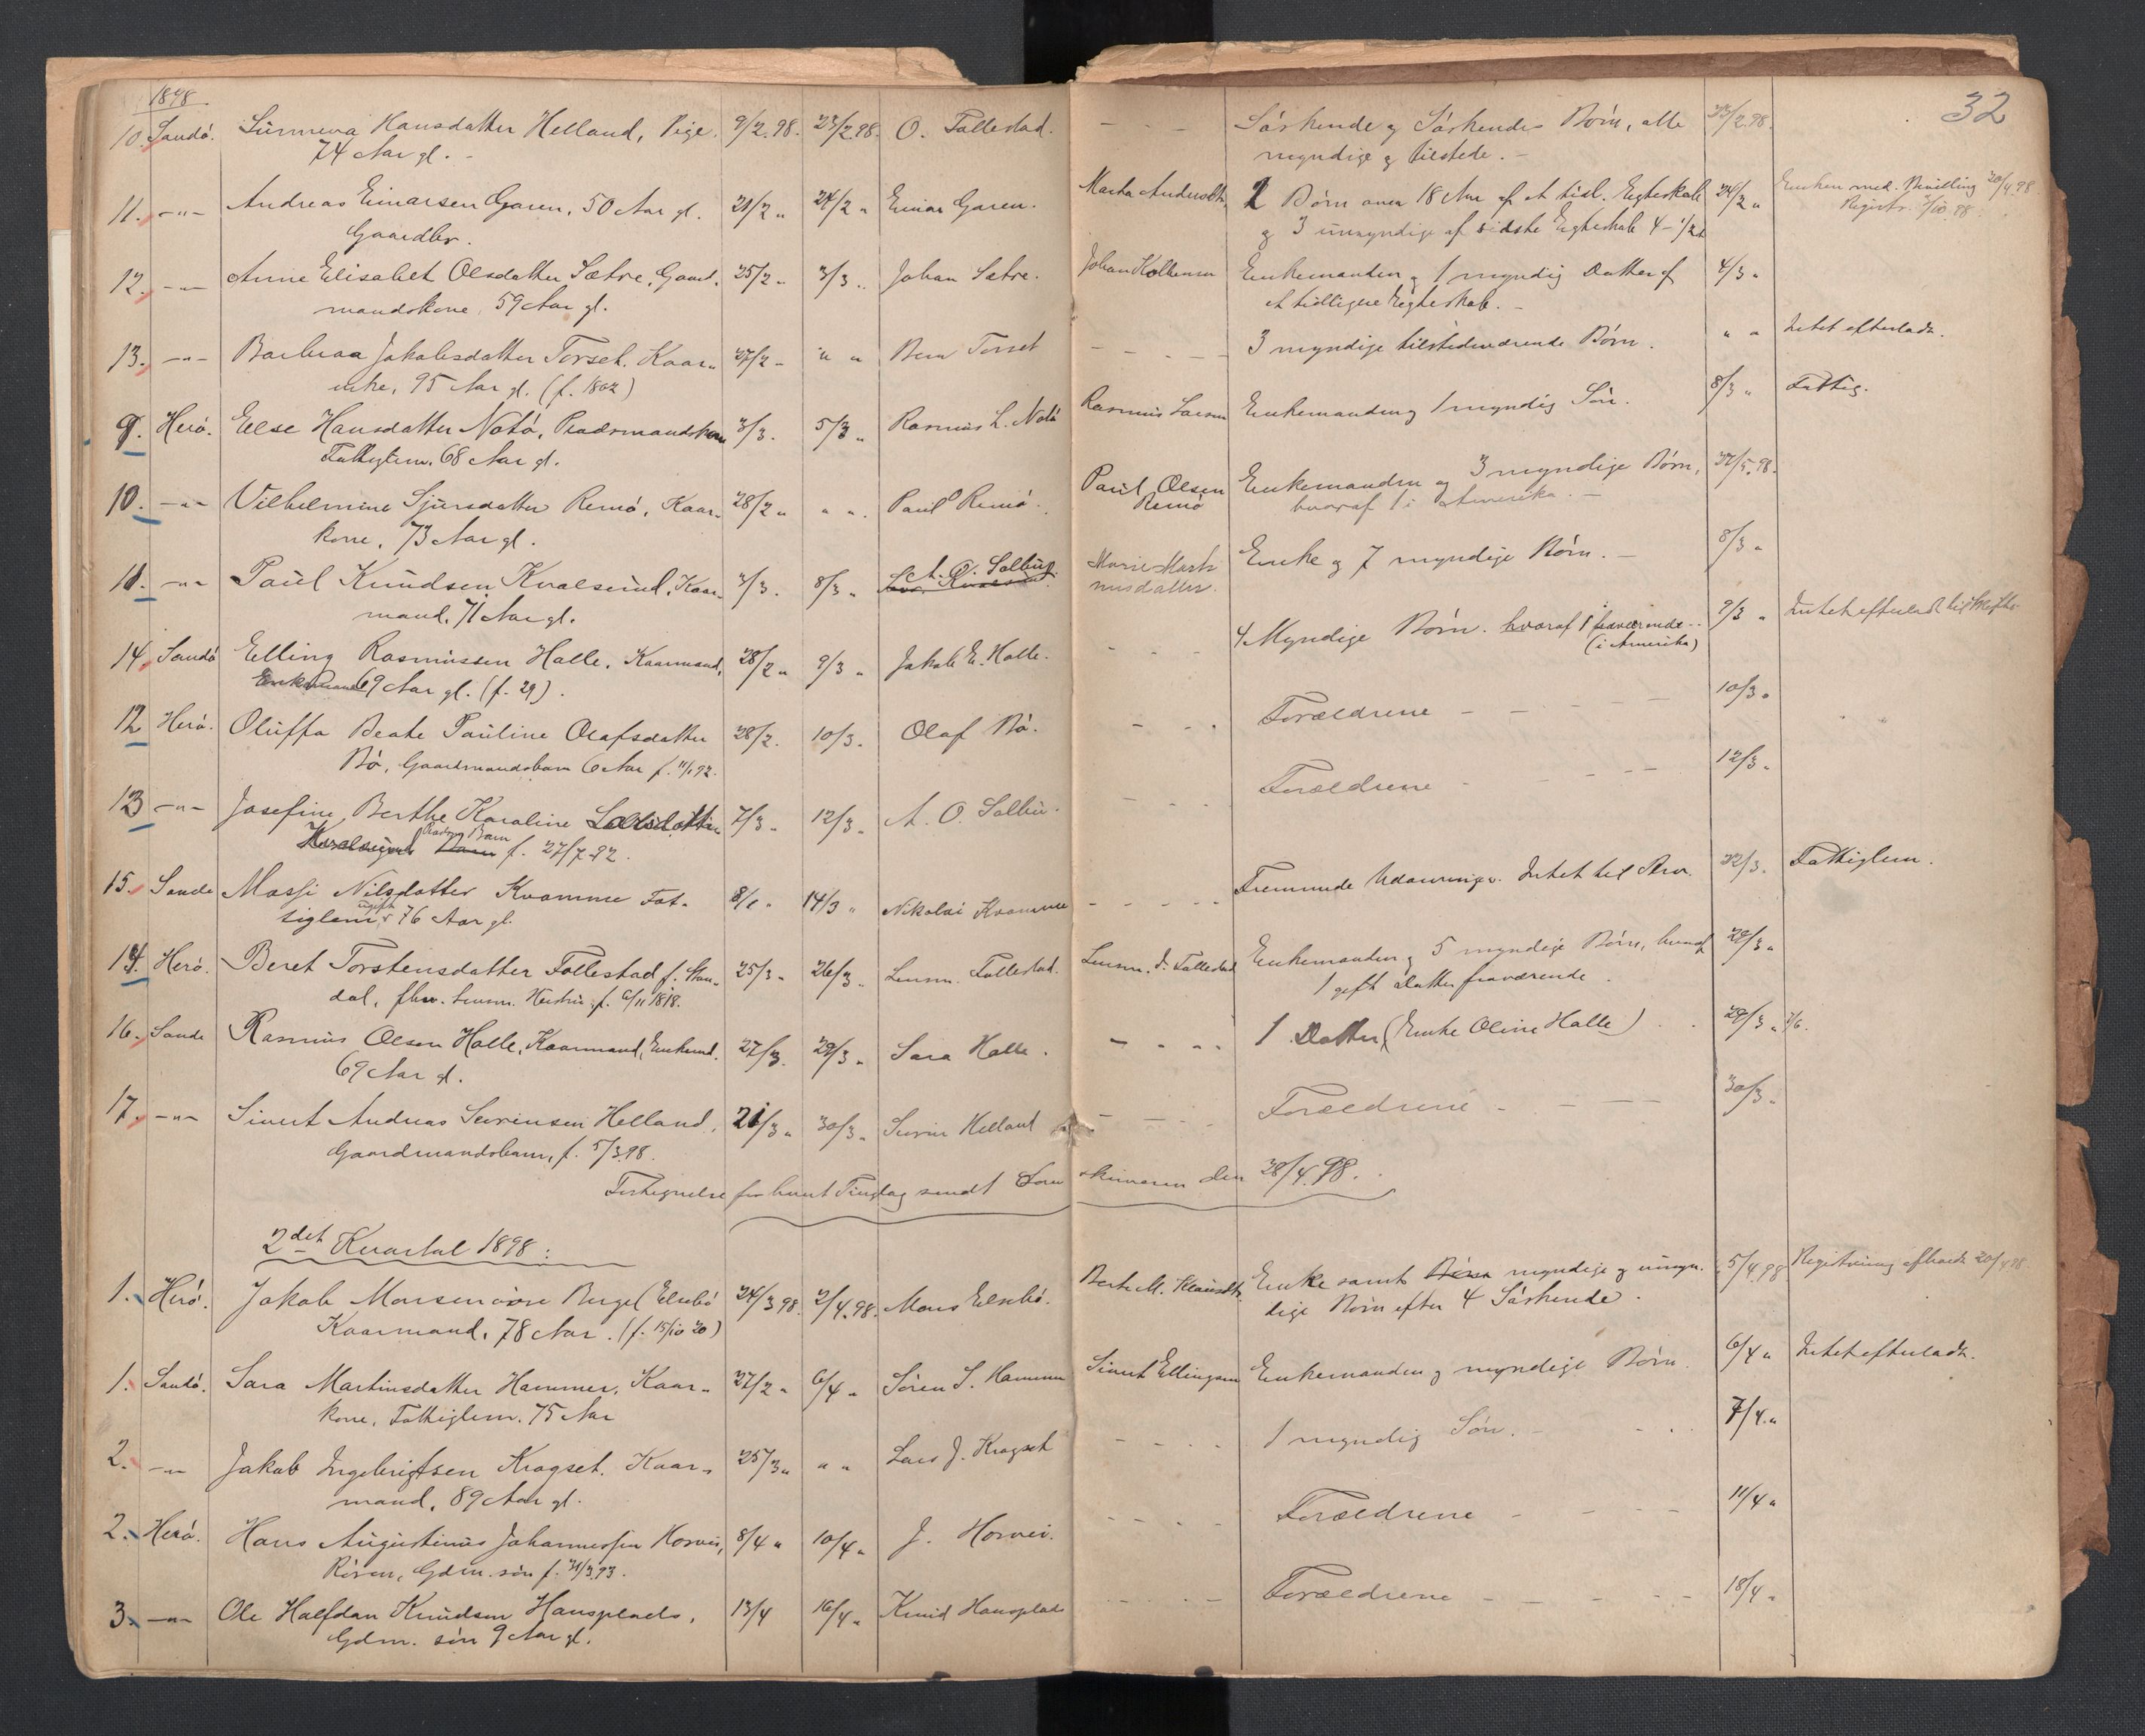 1898.
32
10. Sandö. Sünneva Hansdatter Helland, Pige. 9/2.98. 23/2.98. O. Follestad. - - - Söskende og Söskendes Börn, alle 23/2.98.
74 Aar gl. - myndige og tilstede. -
11. -"- Andreas Einarsen Garen, 50 Aar gl. 21/2 " 24/2 " Einar Garen. Marta Andersdtr. 2 Börn over 18 Aar af et tidl. Egteskab 24/2 " Enken med. Bevilling 20/4 98
Gaardbr. og 3 umyndige af sidste Egteskab 4-1/2 Registr. 3/10 98.
12. -"- Anne Elisabet Olsdatter Sætre, Gaard- 25/2 " 3/3 " Johan Sætre. Johan Enkemanden og 1 myndig Datter af 4/3 "
mandskone, 59 Aar gl. et tidligere Egteskab. -
13. -"- Barbraa Jakobsdatter Torset. Kaar- 27/2 - " " Torset - - - - 3 myndige tilstedeværende Börn. " " Intet efterladt.
enke, 95 Aar gl. (f. 1802)
9. Herö. Else Hansdatter Notö, Pladsmandskone 3/3. 5/3 " Rasmus L. Notö Rasmus Larsen Enkemanden og 1 myndig Sön. 8/3 " Fattig.
Fattiglem. 68 Aar gl.
10. -"- Vilhelmine Sjursdatter Remö, Kaar- 28/2 " " " Paul Remö. Paul Olsen Enkemanden og 3 myndige Börn, 27/5.98.
kone, 73 Aar gl. Remö hvoraf 1 i Amerika. -
11. -"- Paul Knudsen Kvalsund, Kaar- 3/3. 8/3 " A. O. Solbu. Marie Marti- Enke og 7 myndige Börn. - 8/3 "
mand, 71 Aar gl. nusdatter.
14. Sandö Elling Rasmussen Halle. Kaarmand, 28/2 " 9/3 " Jakob E. Halle. - - - 4 Myndige Börn. hvoraf 1 fraværende - 9/3 " Intet efterladt til
Enkemand 69 Aar gl. (f. 29). (i Amerika)
12 Herö. Oluffa Beate Pauline Olafsdatter 28/2. 10/3. Olaf Bö. - - - Forældrene - - - 10/3.
Bö, Gaardmandsbarn 6 Aar f. 11/1 92.
13 -"- Josefine Berthe Karoline 7/3. 12/3. A. O. Solbu. - - - Forældrene - - - 12/3.
Kvalsund Barn f. 27/7.92.
15. Sande Massi Nilsdatter Kvamme Fat- 8/1 " 14/3 " Nikolai Kvamme - - - - Fremmede Udarvinger. Intet til Arv. 22/3. Fattiglem.
tiglem ugift 76 Aar gl.
14. Herö. Beret Torstensdatter Follestad f. Stan- 25/3 - 26/3. Lensm. Follestad. Lensm. J. Follestad Enkemanden og 5 myndige Börn, hvoraf 29/3 "
dal, fhv. Lensm. Hustru f. 6/11 1818. 1 gift Datter fraværende.
16. Sande Rasmus Olsen Halle, Kaarmand, Enkemd. 27/3. 29/3 " Sara Halle. - - - - 1 Datter (Enke Oline Halle) . . 29/3 "
69 Aar gl.
17. -"- Sivert Andreas Severinsen Helland, 21/3 " 30/3 " Severin Helland - - - Forældrene - - - 30/3.
Gaardmandsbarn, f. 5/3 98.
Fortegnelse for hvert Tinglag sendt Sorenskriveren den 28/4.98.
2det Kvartal 1898:
1. Herö. Jakob Monsen övre Berge (Elsebö 24/3 98. 2/4.98. Mons Elsebö. Berte M. Klausdtr. Enke samt Börn myndige og umyn- 5/4.98 Registrering afholdt 20/4 98
Kaarmand, 78 Aar. (f. 15/10 20) dige Börn efter 4 Söskende.
1. Sandö. Sara Martinsdatter Hammer, Kaar- 27/2 " 6/4 " Sören S. Hammer Sivert Ellingsen Enkemanden og myndige Börn. 6/4 " Intet efterladt.
kone, Fattiglem. 75 Aar
2. -"- Jakob Ingebrigtsen Kragset. Kaar- 25/3 " " " Lars J. Kragset - - - - 1 myndig Sön. - . . 7/4 "
mand, 89 Aar gl.
2. Herö. Hans Augustinus Johannessen Horvei, 8/4 " 10/4 " J. Horvei. - - - - Forældrene - - - 11/4 "
Gdm. sön f. 31/3.93.
3. -"- Ole Halfdan Knudsen Hansplads, 13/4 16/4 " Knud Hansplads - - - - Forældrene - - - - 18/4.
Gdm. sön 9 Aar gl.